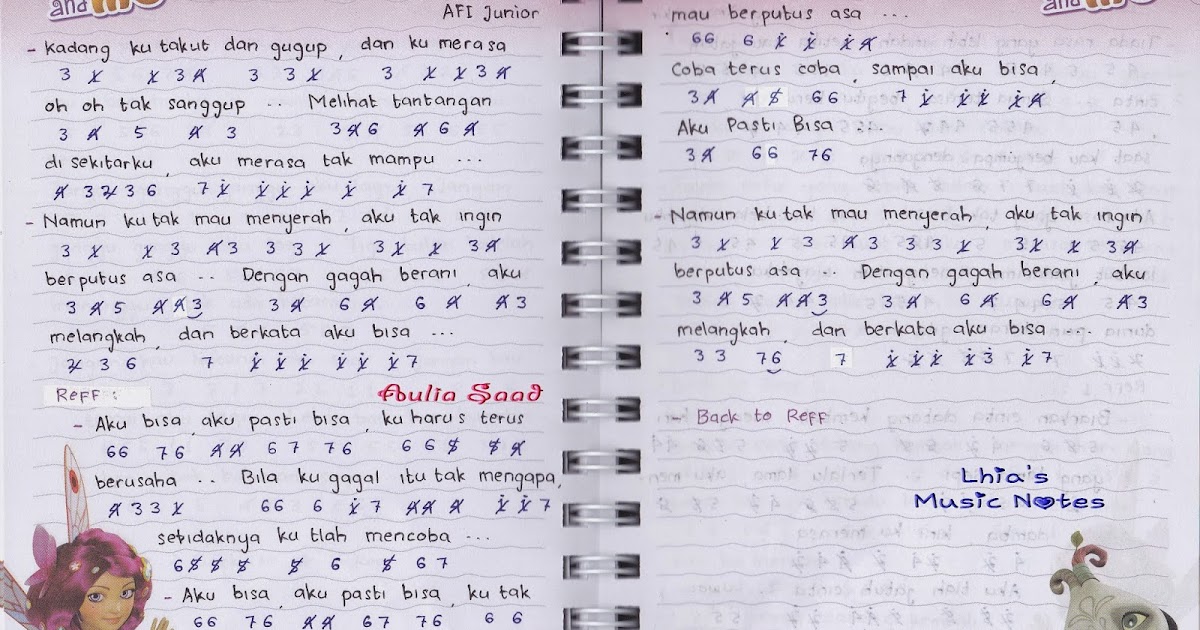 and me
AFI Junior
- Kadang ku takut dan gugup, dan ku merasa
3 1̸ 1̸ 3 4̸ 3 3 1̸ 3 1̸ 1̸ 3 4̸
oh oh tak sanggup .. Melihat tantangan
3 4̸ 5 4̸ 3 3 4̸ 6 4̸ 6 4̸
di sekitarku, aku merasa tak mampu ...
4̸ 3 2̸ 3 6 7 1̸̇ 1̸̇ 1̸̇ 1̸̇ 1̸̇ 1̸̇ 7
- Namun ku tak mau menyerah, aku tak ingin
3 1̸ 1̸ 3 4̸ 3 3 3 1̸ 3 1̸ 1̸ 3 4̸
berputus asa .. Dengan gagah berani, aku
3 4̸ 5 4̸ 4̸ 3 3 4̸ 6 4̸ 6 4̸ 4̸ 3
melangkah, dan berkata aku bisa ...
2̸ 3 6 7 1̸̇ 1̸̇ 1̸̇ 1̸̇ 1̸̇ 1̸̇ 7
Reff :
Aulia Saad
- Aku bisa, aku pasti bisa, ku harus terus
66 76 4̸4̸ 67 76 6 6 5̸ 5̸ 4̸
berusaha .. Bila ku gagal itu tak mengapa,
4̸ 3 3 1̸ 66 6 1̸̇ 7 4̸4̸ 4̸ 1̸̇ 1̸̇ 7
setidaknya ku tlah mencoba ...
6 5̸ 5̸ 5̸ 5̸ 6 5̸ 6 7
- Aku bisa, aku pasti bisa, ku tak
66 76 4̸4̸ 67 76 6 6
and me
mau berputus asa ...
66 6 1̸̇ 1̸̇ 1̸̇ 4̸
Coba terus coba, sampai aku bisa,
3 4̸ 4̸ 5̸ 66 7 1̸̇ 1̸̇ 1̸̇ 1̸̇ 4̸
Aku Pasti Bisa ...
3 4̸ 66 76
- Namun ku tak mau menyerah, aku tak ingin
3 1̸ 1̸ 3 4̸ 3 3 3 1̸ 3 1̸ 1̸ 3 4̸
berputus asa .. Dengan gagah berani, aku
3 4̸ 5 4̸ 4̸ 3 3 4̸ 6 4̸ 6 4̸ 4̸ 3
melangkah, dan berkata aku bisa ...
3 3 76 7 1̸̇ 1̸̇ 1̸̇ 1̸̇ 3̇ 1̸̇ 7
- Back to Reff
Lhia's
Music Notes